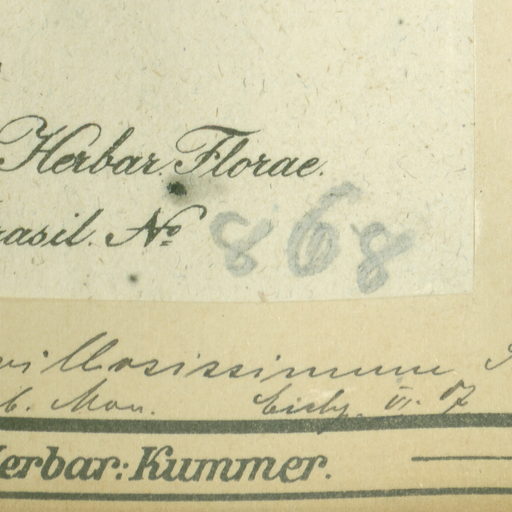 Herbar. Florae.
rasil. No 868
villosissimum
b. Mon. VI. 07
Herbar: Kummer.